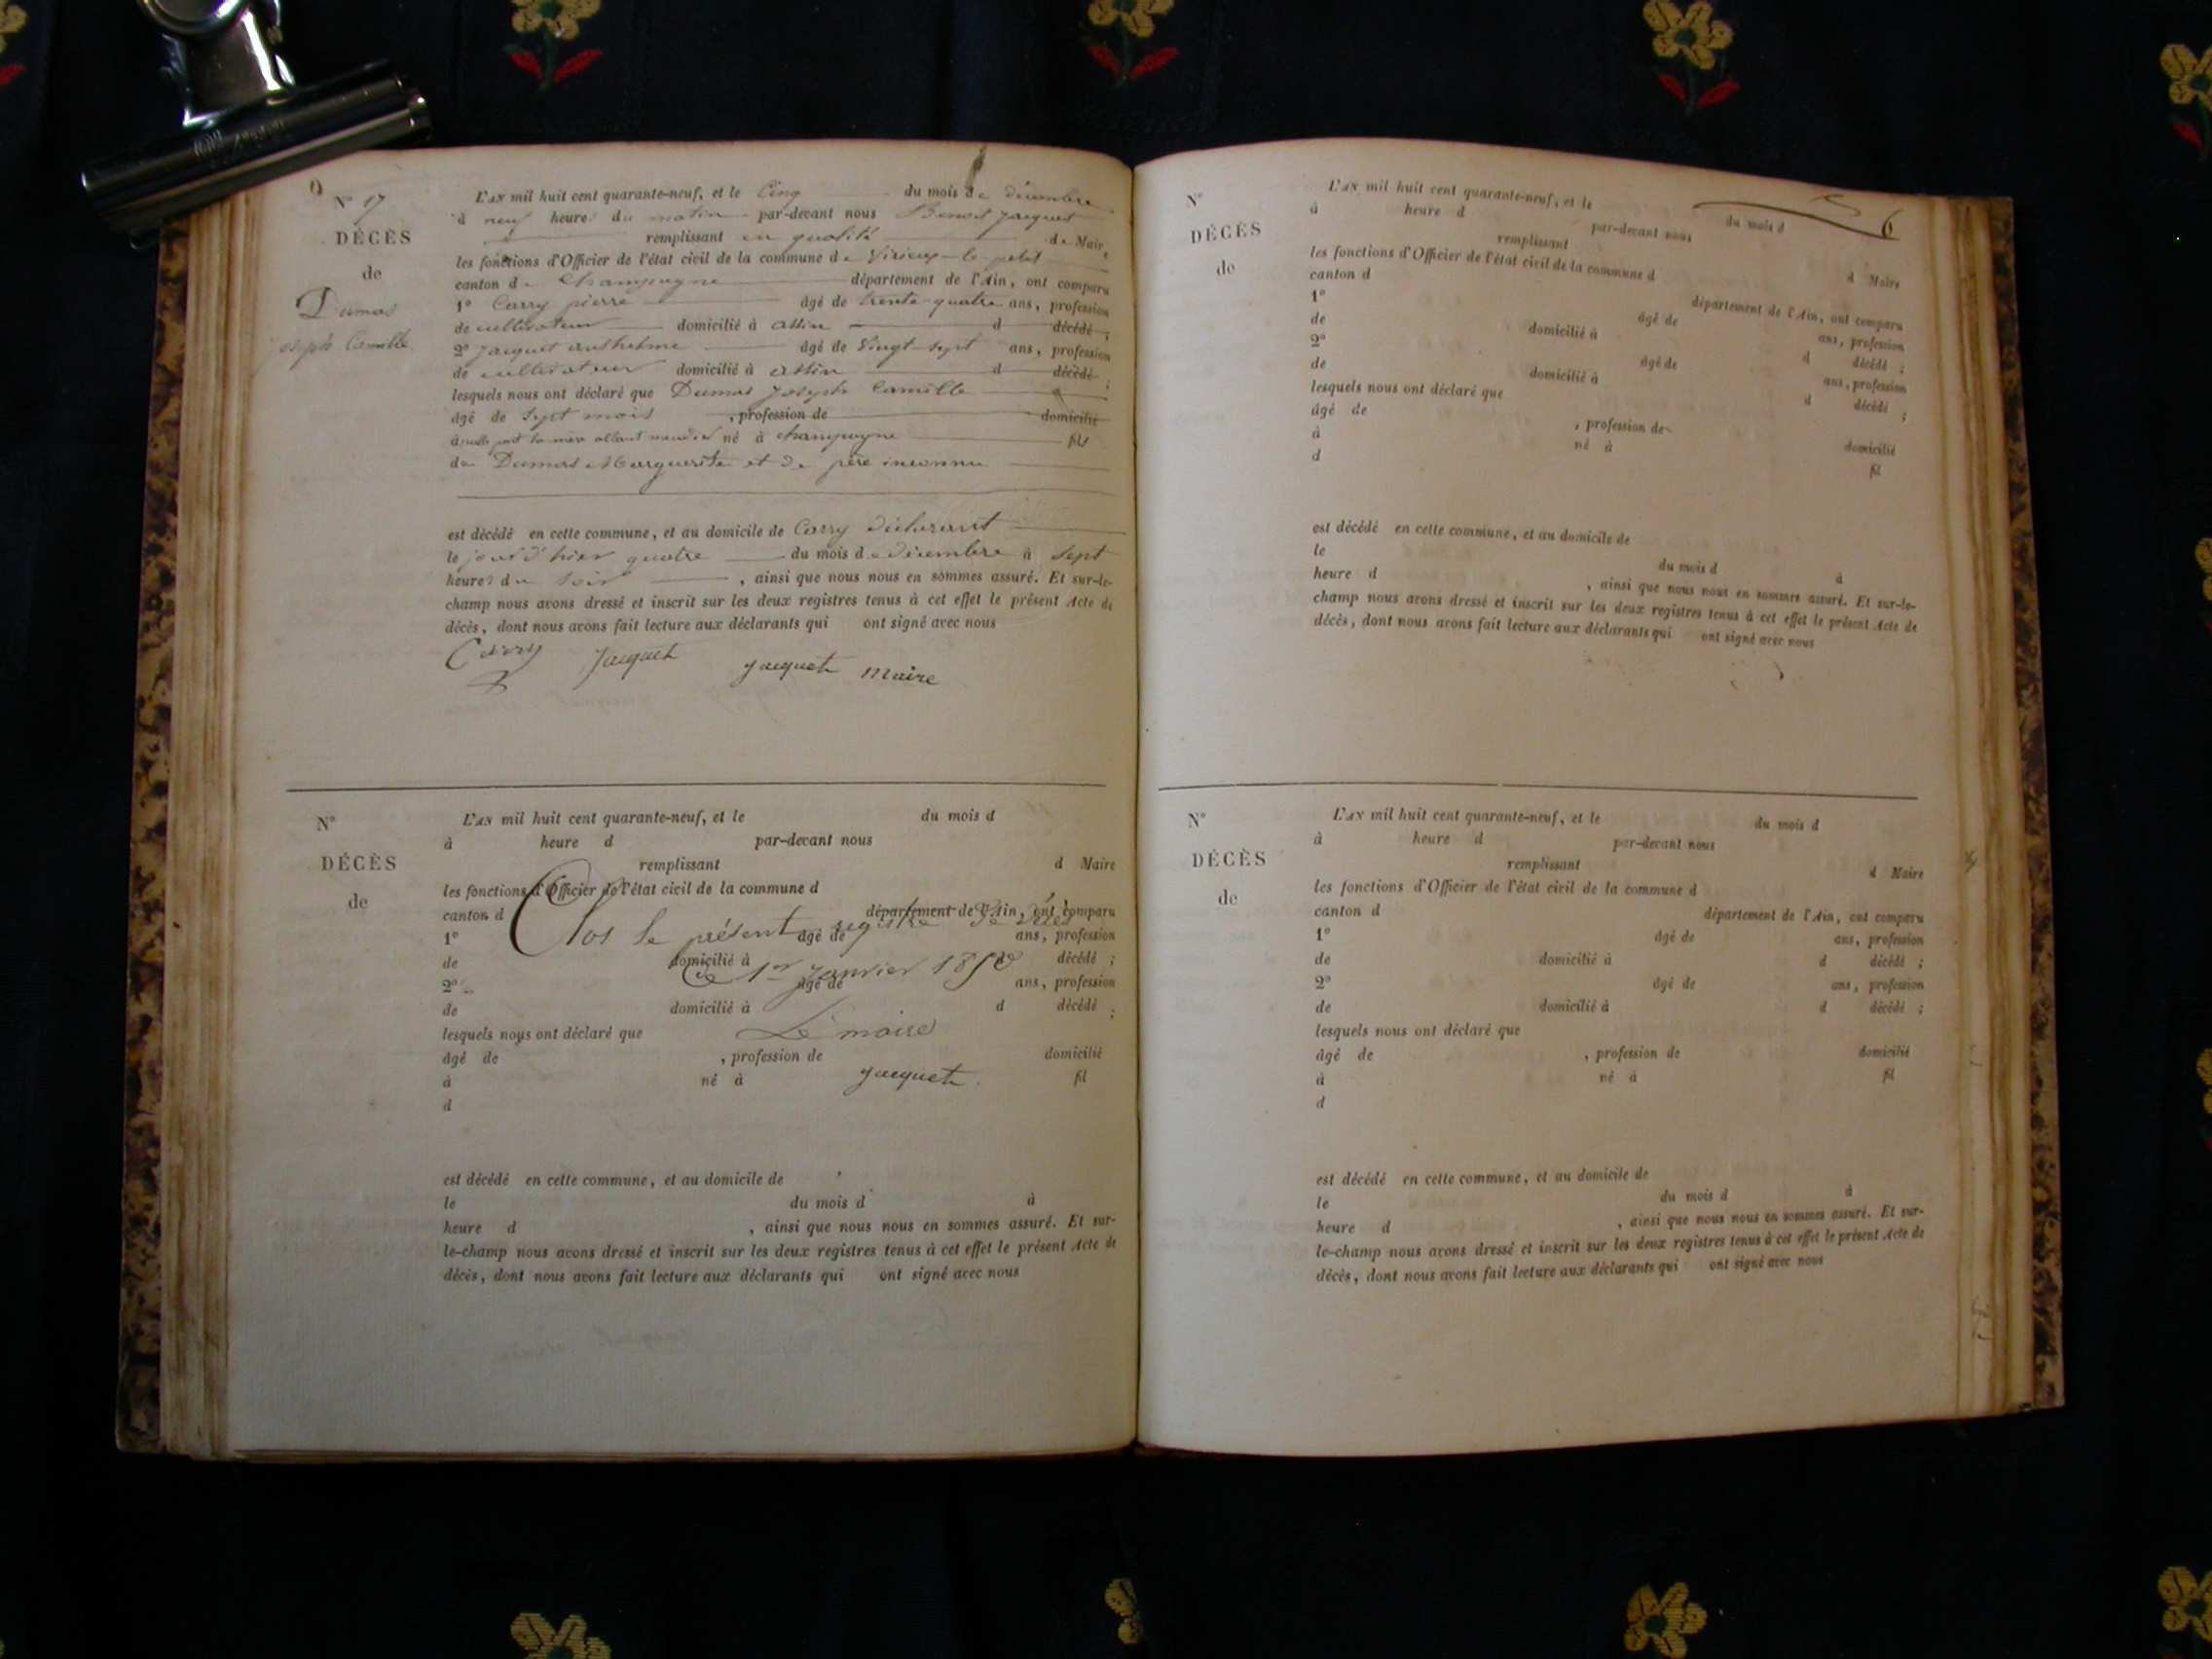 N° 17
DÉCÈS
de
Dumas
Joseph Camille.
L'AN mil huit cent quarante-neuf, et le Cinq du mois de décembre
à neuf heures du matin par-devant nous Benoit Jacquet
remplissant en qualité de Maire
les fonctions d'Officier de l'état civil de la commune de Virieux-le-petit
canton de Champagne département de l'Ain, ont comparu
1° Carry pierre âgé de trente-quatre ans, profession
de cultivateur domicilié à Assin d décédé ;
2° Jacquet anthelme âgé de Vingt-sept ans, profession
de cultivateur domicilié à Assin d décédé ;
lesquels nous ont déclaré que Dumas Joseph Camille
âgé de Sept mois , profession de domicilié
à la mère allant né à Champagne fils
de Dumas Marguerite et de père inconnu
est décédé en cette commune, et au domicile de Carry déclarant
le jour d'hier quatre du mois de décembre à Sept
heures du Soir , ainsi que nous nous en sommes assuré. Et sur-le-
champ nous avons dressé et inscrit sur les deux registres tenus à cet effet le présent Acte de
décès, dont nous avons fait lecture aux déclarants qui ont signé avec nous
Carry Jacquet Jacquet maire
N°
DÉCÈS
de
L'AN mil huit cent quarante-neuf, et le du mois d
à heure d par-devant nous
remplissant d Maire
les fonctions d'Officier de l'état civil de la commune d
canton d département de l'Ain, ont comparu
Clos le présent registre de décès
1° âgé de ans, profession
de domicilié à décédé ;
Ce 1er Janvier 1850
2° âgé de ans, profession
de domicilié à d décédé ;
lesquels nous ont déclaré que
Le maire
âgé de , profession de domicilié
à né à fil
Jacquet.
d
est décédé en cette commune, et au domicile de
le du mois d à
heure d , ainsi que nous nous en sommes assuré. Et sur-
le-champ nous avons dressé et inscrit sur les deux registres tenus à cet effet le présent Acte de
décès, dont nous avons fait lecture aux déclarants qui ont signé avec nous
6
N°
DÉCÈS
de
L'AN mil huit cent quarante-neuf, et le du mois d
à heure d par-devant nous
remplissant d Maire
les fonctions d'Officier de l'état civil de la commune d
canton d département de l'Ain, ont comparu
1° âgé de ans, profession
de domicilié à d décédé ;
2° âgé de ans, profession
de domicilié à d décédé ;
lesquels nous ont déclaré que
âgé de , profession de domicilié
à né à fil
d
est décédé en cette commune, et au domicile de
le du mois d à
heure d , ainsi que nous nous en sommes assuré. Et sur-le-
champ nous avons dressé et inscrit sur les deux registres tenus à cet effet le présent Acte de
décès, dont nous avons fait lecture aux déclarants qui ont signé avec nous
N°
DÉCÈS
de
L'AN mil huit cent quarante-neuf, et le du mois d
à heure d par-devant nous
remplissant d Maire
les fonctions d'Officier de l'état civil de la commune d
canton d département de l'Ain, ont comparu
1° âgé de ans, profession
de domicilié à d décédé ;
2° âgé de ans, profession
de domicilié à d décédé ;
lesquels nous ont déclaré que
âgé de , profession de domicilié
à né à fil
d
est décédé en cette commune, et au domicile de
le du mois d à
heure d , ainsi que nous nous en sommes assuré. Et sur-
le-champ nous avons dressé et inscrit sur les deux registres tenus à cet effet le présent Acte de
décès, dont nous avons fait lecture aux déclarants qui ont signé avec nous